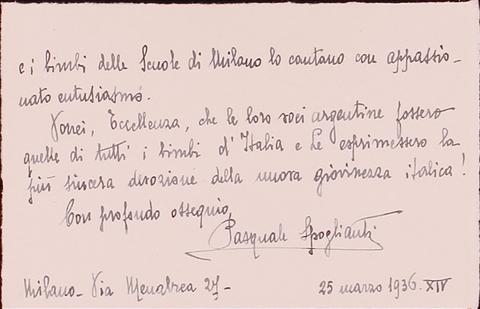 e i bimbi delle Scuole di Milano lo cantano con appassio-
nato entusiasmo.
Vorrei, Eccellenza, che le loro voci argentine fossero
quelle di tutti i bimbi d'Italia e Le esprimessero la
più sincera devozione della nuova giovinezza italica!
Con profondo ossequio,
Pasquale Spoglianti
Milano - Via Menabrea 27 -
25 marzo 1936. XIV